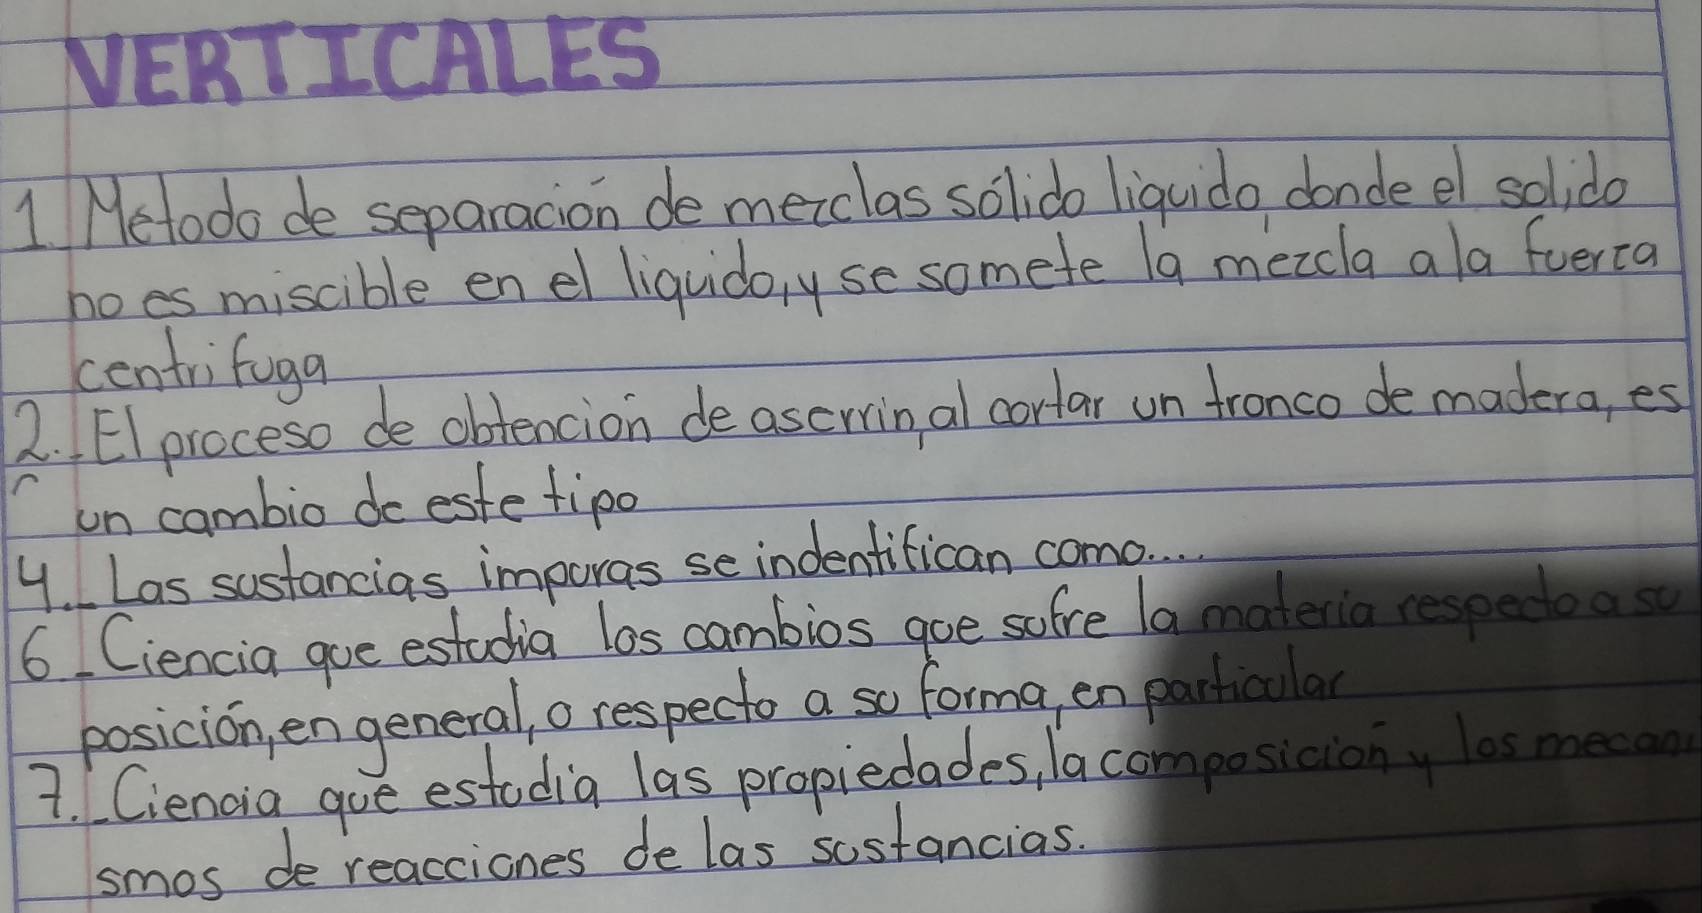 VERTICALES
1. Metodo de separación de mezclas sólido liquido, donde el solido
no es miscible en el liquido, y se somete la mezcla a la fuerza
centrifuga
2.- El proceso de obtención de aserrin, al cortar un tronco de madera, es
un cambio de este tipo
4.- Las sustancias impuras se indentifican como....
6.- Ciencia que estudia los cambios que sufre la materia respecto a su
posición, en general, o respecto a su forma, en particular
7.- Ciencia que estudia las propiedades, la composición y los mecani
smos de reacciones de las sustancias.